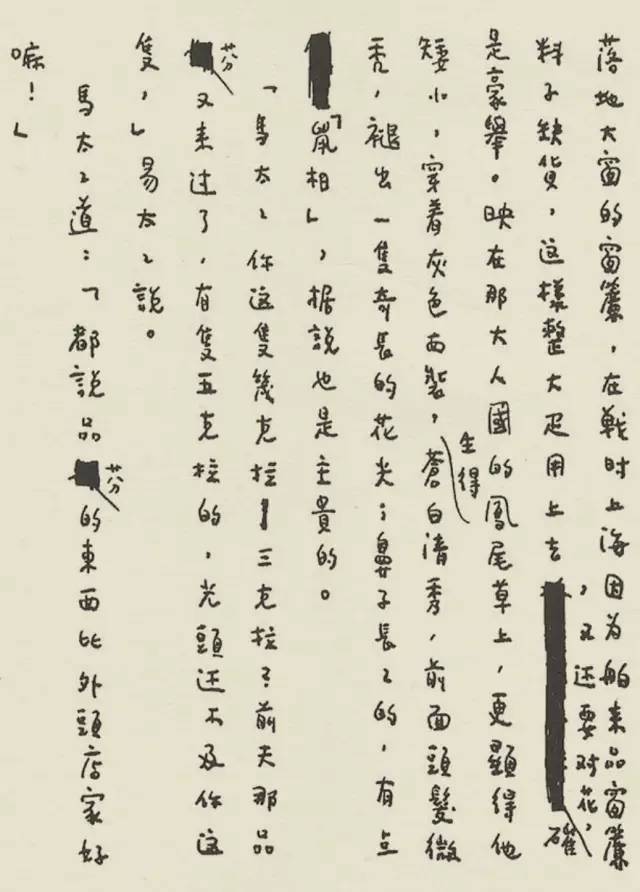 落地大窗的窗簾，在戰时上海因为舶来品窗簾
料子缺货，这樣整大疋用上去，又还要对花，確
是豪舉。映在那大人國的鳳尾草上，更顯得他
矮小，穿着灰色西裝，生得蒼白清秀，前面頭髮微
禿，褪出一隻奇長的花尖；鼻子長ㄑ的，有点
「鼠相」，据說也是主貴的。
「馬太ㄑ你这隻幾克拉——三克拉？前天那品
芬又来过了，有隻五克拉的，光頭还不及你这
隻，」易太ㄑ說。
馬太ㄑ道：「都說品芬的東西比外頭店家好
嘛！」